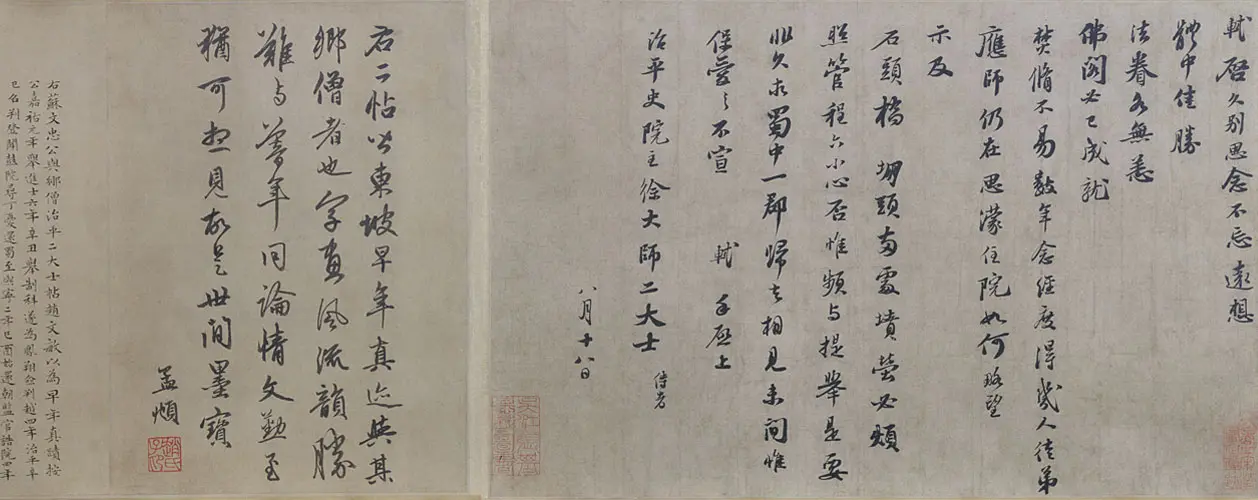 軾啓久别思念不忘遠想
體中佳勝
法眷各無恙
佛閣必已成就
焚脩不易數年念經度得幾人徒弟
應師仍在思濛住院如何略望
示及
石頭橋
頭兩處墳塋必煩
照管程六小心否惟頻与提舉是要
非久求蜀中一郡歸去相見未間惟
保愛之不宣 軾 手啓上
治平史院主徐大師二大士 侍者
八月十八日
右二帖皆東坡早年真迹與其
鄉僧者也字畫風流韻勝
難与暮年同論情文勤至
猶可想見故是世間墨寶
孟頫
趙氏子昂
右蘇文忠公與鄉僧治平二大士帖趙文敏以為早年真蹟按
公嘉祐元年舉進士六年辛丑舉制科遂為鳳翔僉判越四年治平
已召判登聞鼓院尋丁憂還蜀至熙寧二年己酉始還朝監官誥院四年